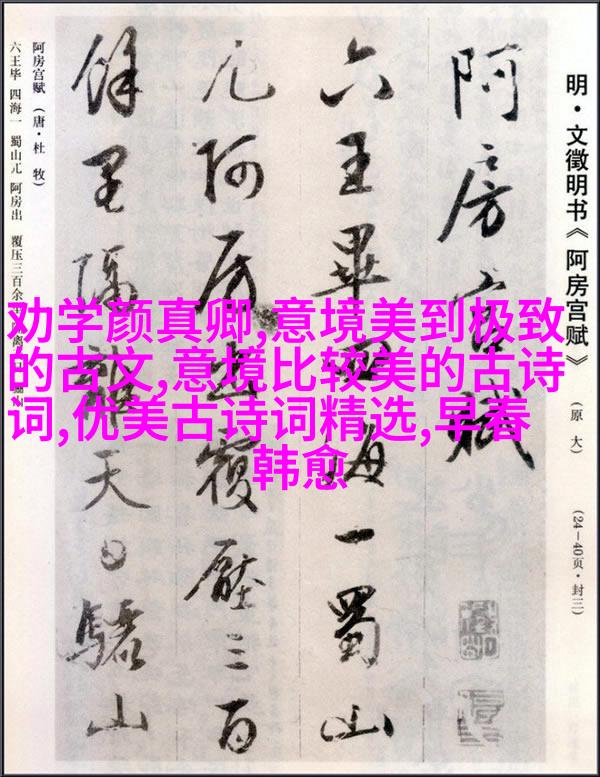 劝学颜真卿,意境美到极致
的古文,意境比较美的古诗
词,优美古诗词精选,早春
韩愈
明·文徵明书《阿房宫赋》
(原 大)
(24—40页·封三)
阿房宫赋
六王畢四海一蜀山
兀阿房出覆壓三百
餘里隔離天日驪山
阿房宫赋(唐·杜 牧)
六王毕 四海一 蜀山兀 阿房出 覆压三百余